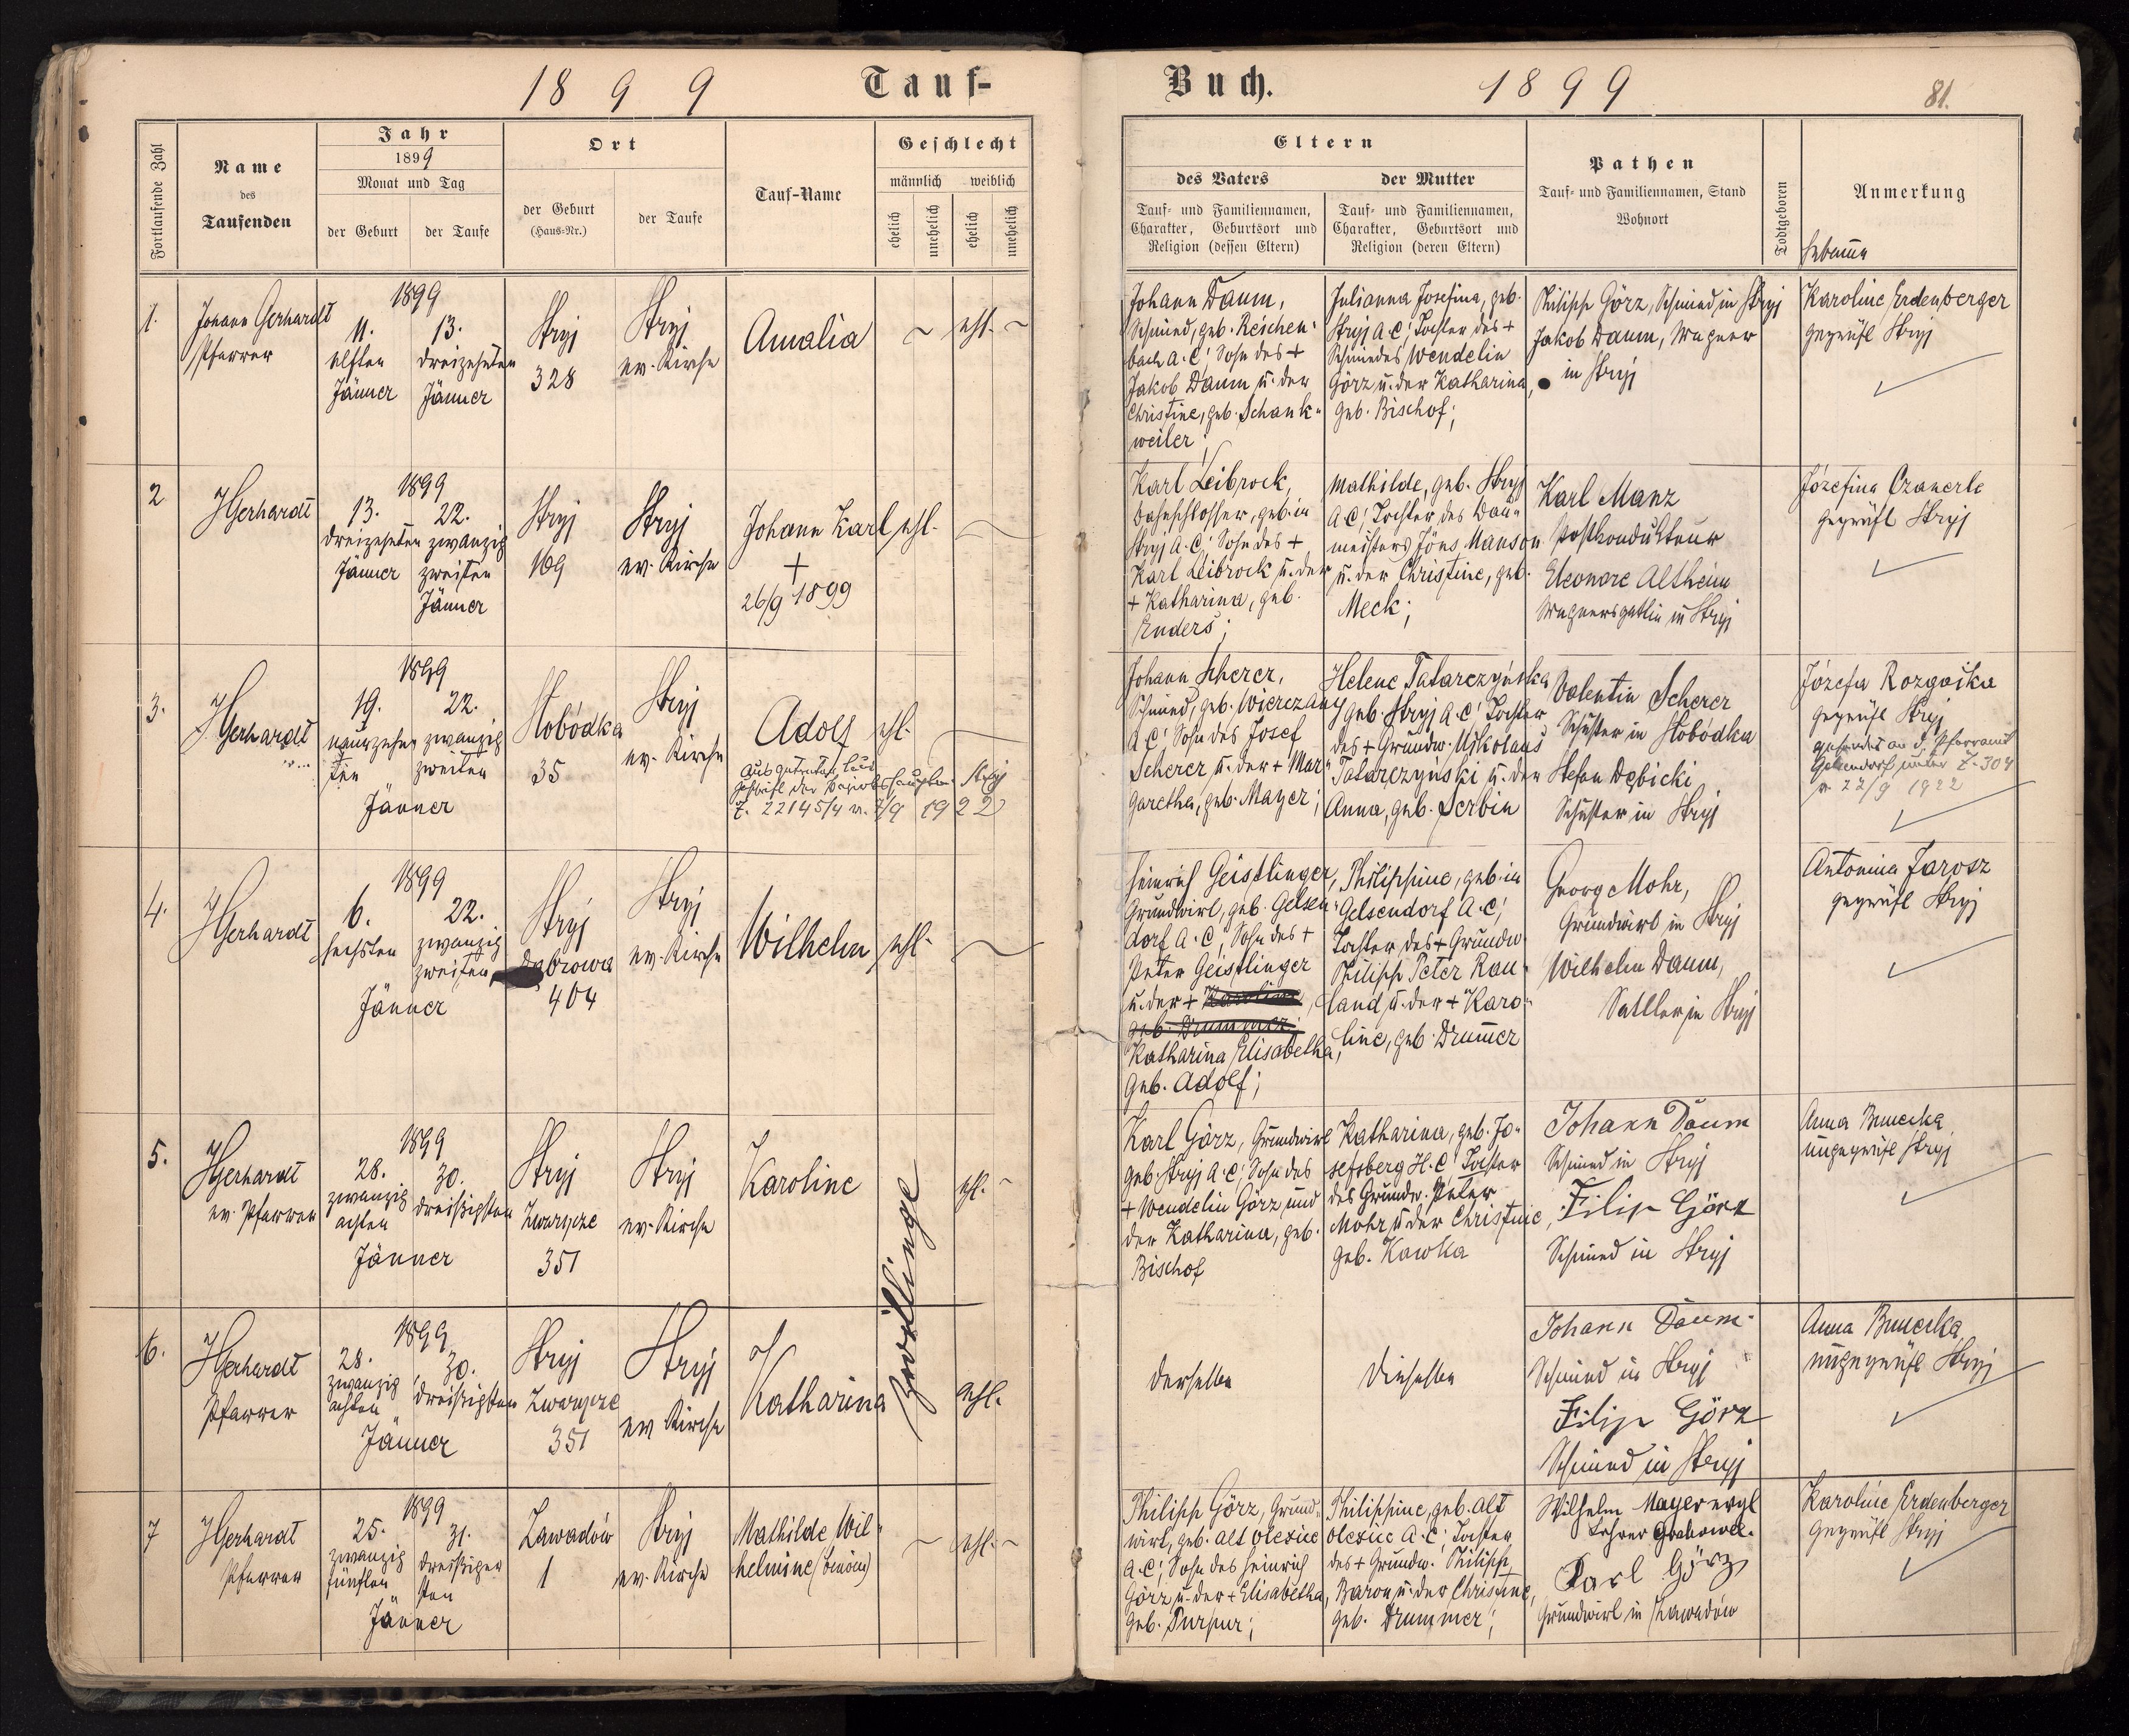 1899 Tauf-
Fortlaufende Zahl
Name
des
Taufenden
Jahr
1899
Monat und Tag
der Geburt
der Taufe
Ort
der Geburt
(Haus-Nr.)
der Taufe
Tauf-Name
Geschlecht
männlich weiblich
ehelich
unehelich
ehelich
unehelich
1.
Johann Gerhardt
Pfarrer
1899
11.
elften
Jänner
13.
dreizehnten
Jänner
Stryj
328
Stryj
ev. Kirche
Amalia
ehl.
2
JGerhardt
1899
13.
dreizehnten
Jänner
22.
zwanzig
zweiten
Jänner
Stryj
169
Stryj
ev. Kirche
Johann Karl
+
26/9 1899
ehl.
3.
JGerhardt
1899
19.
neunzehn
ten
22.
zwanzig
zweiten
Jänner
Slobódka
35
Stryj
ev. Kirche
Adolf
ehl.
Ausgetreten laut
Stryj
Z. 22145/4 v. 7/9 1922
4.
JGerhardt
1899
6.
sechsten
22.
zwanzig
zweiten
Jänner
Stryj
Dąbrowa
404
Stryj
ev. Kirche
Wilhelm
ehl.
5.
JGerhardt
ev. Pfarrer
1899
28.
zwanzig
achten
30.
dreißigsten
Jänner
Stryj
Zwarycze
351
Stryj
ev. Kirche
Karoline
Zwillinge
ehl.
6.
JGerhardt
Pfarrer
1899
28.
zwanzig
achten
30.
dreißigsten
Jänner
Stryj
Zwarycze
351
Stryj
ev Kirche
Katharina
ehl.
7
JGerhardt
Pfarrer
1899
25.
zwanzig
fünften
31.
Jänner
Zawadów
1
Stryj
ev. Kirche
Mathilde Wil-
helmine
ehl.
Buch. 1899 81.
Eltern
des Vaters
Tauf- und Familiennamen,
Charakter, Geburtsort und
Religion (dessen Eltern)
der Mutter
Tauf- und Familiennamen,
Charakter, Geburtsort und
Religion (deren Eltern)
Pathen
Tauf- und Familiennamen, Stand
Wohnort
Todtgeboren
Anmerkung
Hebamme
Johann Daum,
Schmied, geb. Reichen-
bach A.C; Sohn des +
Jakob Daum u. der
Christine, geb. Schank-
weiler;
Julianna Josefina, geb.
Stryj A.C; Tochter des +
Schmiedes Wendelin
Görz u. der Katharina,
geb. Bischof;
Philipp Görz, Schmied in Stryj
Jakob Daum, Wagner
in Stryj
Karoline Erdenberger
geprüft Stryj
Karl Leibrock,
Bahnschlosser, geb. in
Stryj A.C; Sohn des +
Karl Leibrock u. der
+ Katharina, geb.
Enders;
Mathilde, geb. Stryj
A C; Tochter des Bau-
meisters Jöns Manson
u. der Christine, geb.
Meck;
Karl Manz
Postkondukteur
Eleonore Altheim
Wagnersgattin in Stryj
Józefina Czanerle
geprüft Stryj
Johann Scherer,
Schmied, geb. Wierczany
A C; Sohn des Josef
Scherer u. der + Mar-
garetha, geb. Mayer;
Helene Tatarczyńska
geb. Stryj A.C; Tochter
des + Grundw. Mikolaus
Tatarczyński u. der
Anna, geb. Serbin
Valentin Scherer
Schuster in Slobódka
Stefan Dębicki
Schuster in Stryj
Józefa Rozgoika
geprüft Stryj
gesendet an d. Pfarramt
Gelsendorf unter Z. 304
v. 22/9 1922
Heinrich Geistlinger,
Grundwirt, geb. Gelsen-
dorf A.C; Sohn des +
Peter Geistlinger
u. der + Karoline,
geb. Drummer;
Katharina Elisabetha,
geb. Adolf;
Philippine, geb. in
Gelsendorf A.C;
Tochter des + Grundw.
Philipp Peter Rau-
land u. der + Karo-
line, geb. Drum̅er
Georg Mohr,
Grundwirt in Stryj
Wilhelm Daum,
Sattler in Stryj
Antonina Jarosz
geprüft Stryj
Karl Görz, Grundwirt
geb. Stryj A.C; Sohn des
+ Wendelin Görz und
der Katharina, geb.
Bischof
Katharina, geb. Jo-
sefsberg H.C; Tochter
des Grundw. Peter
Mohr u. der Christine,
geb. Kawka
Johann Daum
Schmied in Stryj
Filip Görz
Schmied in Stryj
Anna
ungeprüft Stryj
derselbe
dieselbe
Johann Daum
Schmied in Stryj
Filip Görz
Schmied in Stryj
Anna
ungeprüft Stryj
Philipp Görz, Grund-
wirt, geb. Alt Oleksice
A.C; Sohn des Heinrich
Görz u. der + Elisabetha,
geb. Purpur;
Philippine, geb. Alt
Oleksice A.C; Tochter
des + Grundw. Philipp
Baron u. der Christine,
geb. Drummer;
Wilhelm Mayer evgl
Lehrer
Karl Görz
Grundwirt in Zawadów
Karoline Erdenberger
geprüft Stryj